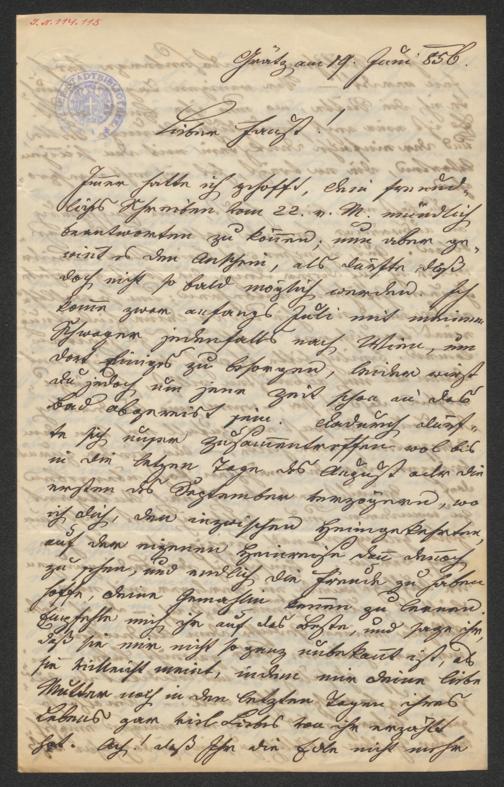 I.N. 114.115
STADTBIBLIOTHEK
Grätz am 19. Juni 856.
Lieber Faust!
Immer hatte ich gehofft, dein freund-
liches Schreiben vom 22. v. M. mündlich
beantworten zu können; nun aber ge-
winnt es den Anschein, als dürfte dieß
doch nicht so bald möglich werden. Ich
komme zwar anfangs Juli mit meinem
Schwager jedenfalls nach Wien, um
dort Einiges zu besorgen, leider wirst
du jedoch um jene Zeit schon in das
Bad abgereist sein. Dadurch dürf-
te sich unser Zusammentreffen wol bis
in die letzten Tage des August oder die
ersten des September verzögern, wo
ich dich, den inzwischen Heimgekehrten,
auf der eigenen Heimreise
zu sehen, und endlich die Freude zu haben
hoffe, deine Gemahlin kennen zu lernen.
Empfehle mich ihr auf das Beste, und sage ihr,
daß sie mir nicht so ganz unbekannt ist, als
sie vielleicht meint, indem mir deine liebe
Mutter noch in den letzten Tagen ihres
Lebens gar viel Liebes von ihr erzählt
hat. Ach! daß Ihr die Edle nicht mehr